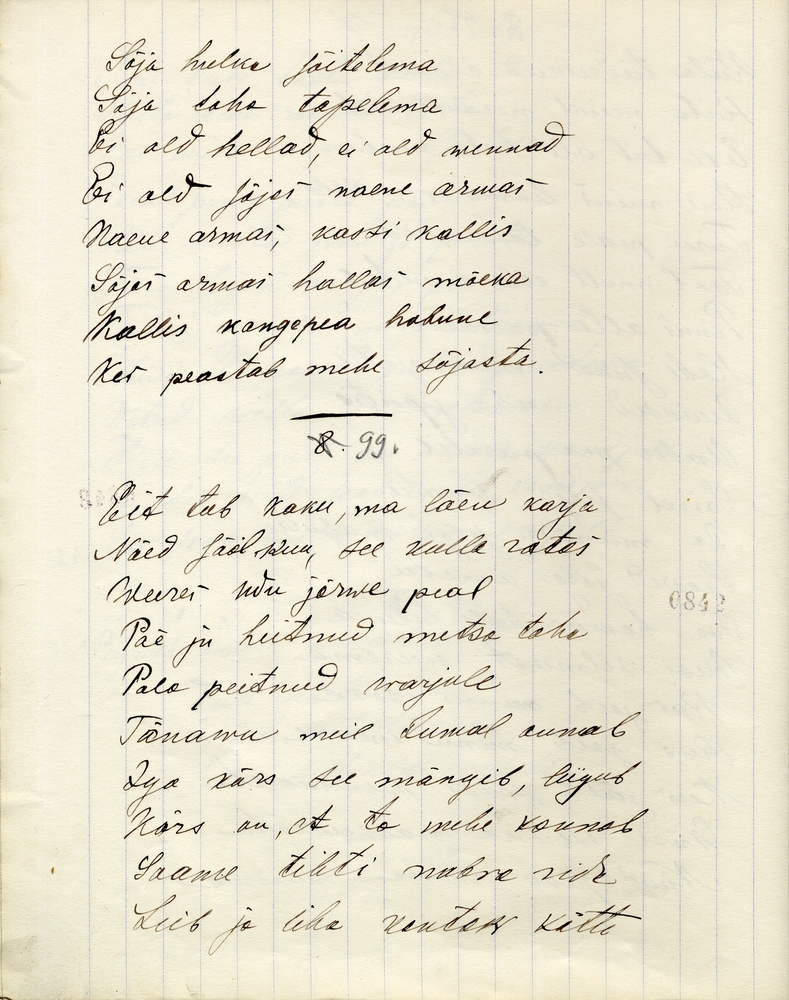 Sõja hulka sõitelema
Sõja taha tapelema
Ei old hellad, ei old wennad
Ei old sõjas naene armas
Naene armas, kassi kallis
Sõjas armas hallas mõeka
Kallis kangepea hobune
Kes peastab mehe sõjasta.
8. 99.
Eit tab kaku, ma läen karja
Näed sääl kuu, see kulla ratas
Weeres udu järwe peal
Pää ju heitnud metsa taha
Pale peitnud warjule
Tänawu meil Jumal annab
Iga kärs see mängib, liigub
Kärs on, et ta mehe kannab
Saame tihti nabra ride
Leib ja liha kätte
0842